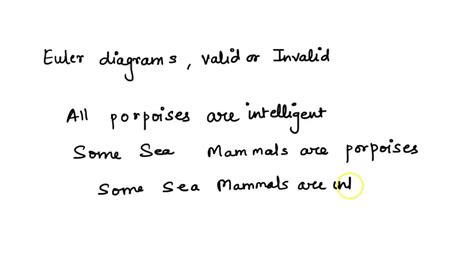 Euler diagrams, valid or Invalid
All porpoises are intelligent
Some Sea Mammals are porpises
Some Sea Mammals are int